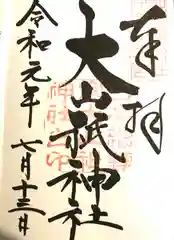 奉拝
大山祇神社
令和元年
七月十三日